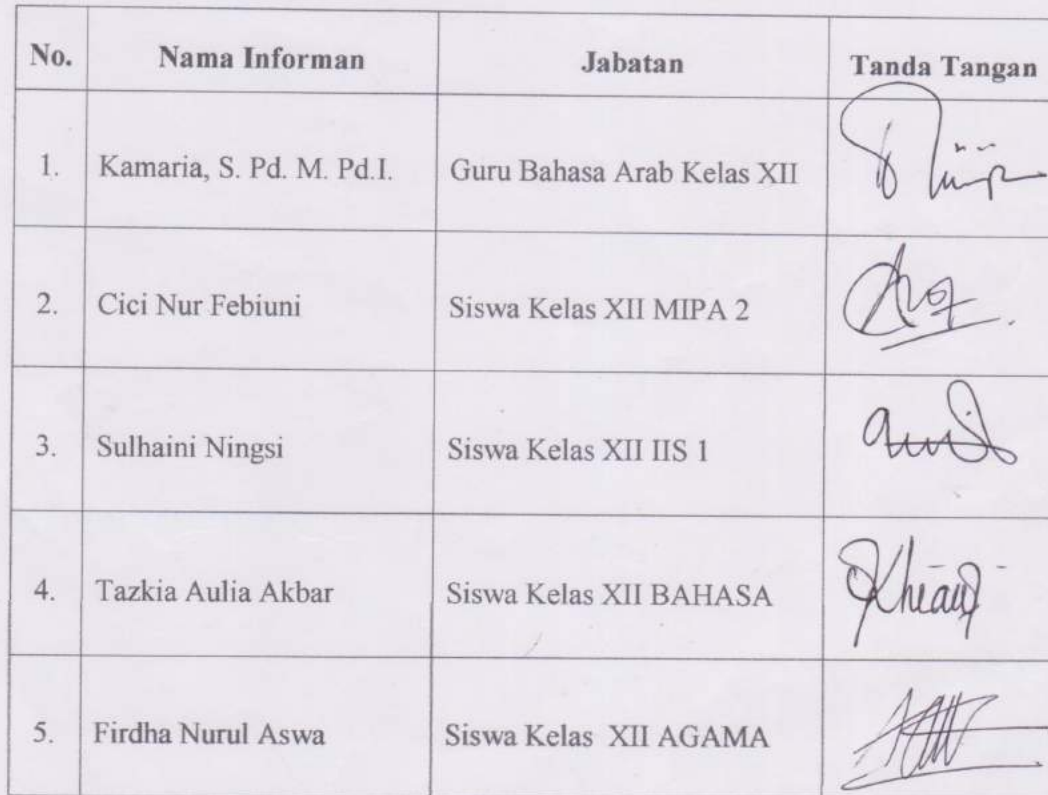 No. Nama Informan Jabatan Tanda Tangan
1. Kamaria, S. Pd. M. Pd.I. Guru Bahasa Arab Kelas XII
2. Cici Nur Febiuni Siswa Kelas XII MIPA 2
3. Sulhaini Ningsi Siswa Kelas XII IIS 1
4. Tazkia Aulia Akbar Siswa Kelas XII BAHASA
5. Firdha Nurul Aswa Siswa Kelas XII AGAMA